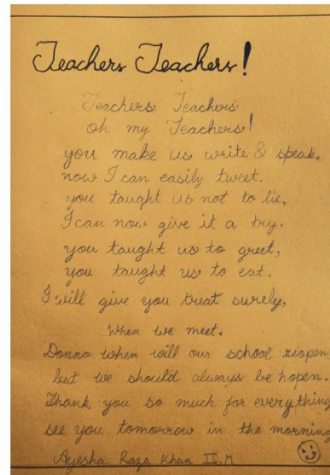 Teachers Teachers!
Teachers Teachers
oh my Teachers!
you make us write & speak,
now I can easily tweet.
you taught us not to lie,
I can now give it a try.
you taught us to greet,
you taught us to eat.
I will give you treat surely,
When we meet.
Donno when will our school reopen
but we should always be hopen.
Thank you so much for everything
see you tomorrow in the morning
Ayesha Raza Khan II.M